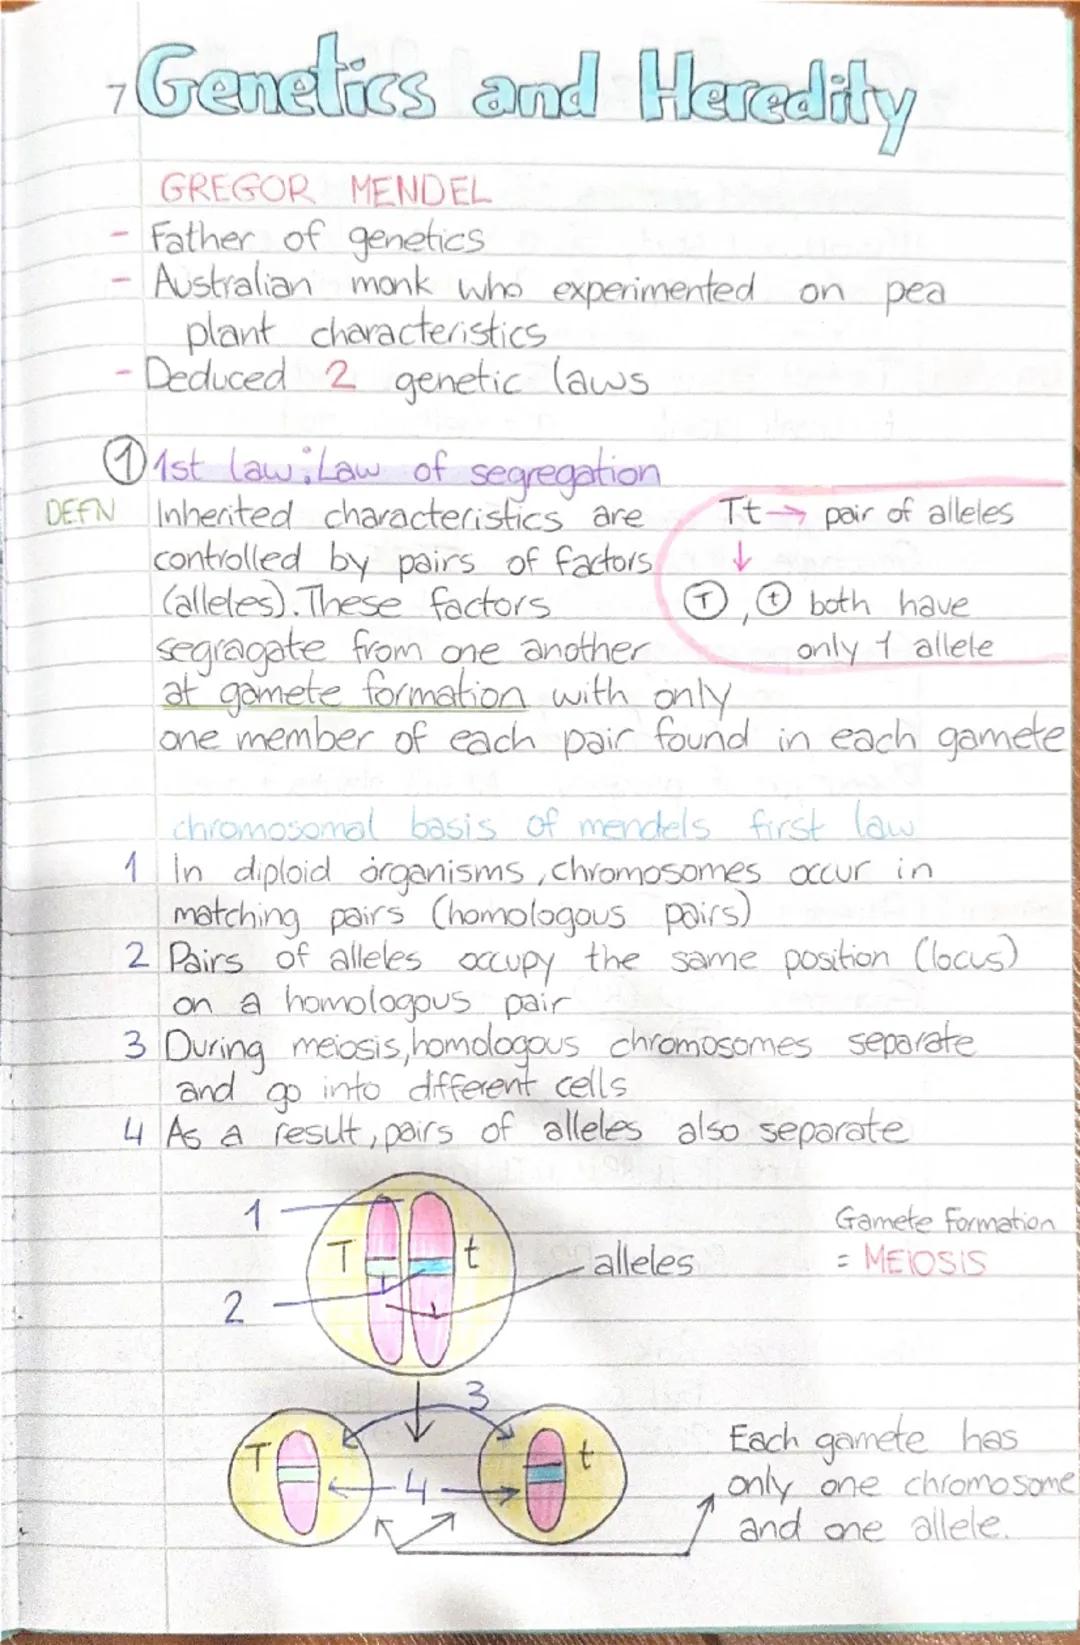 7 Genetics and Heredity
GREGOR MENDEL
- Father of genetics
- Australian monk who experimented on pea
plant characteristics
- Deduced 2 genetic laws
① 1st law: Law of segregation
DEFN Inherited characteristics are
controlled by pairs of factors
(alleles). These factors
segragate from one another
at gamete formation with only
one member of each pair found in each gamete
Tt → pair of alleles
↓
Ⓣ, ⓣ both have
only 1 allele
chromosomal basis of mendels first law
1 In diploid organisms, chromosomes occur in
matching pairs (homologous pairs)
2 Pairs of alleles occupy the same position (locus)
on a homologous pair
3 During meiosis, homologous chromosomes separate
and go into different cells
4 As a result, pairs of alleles also separate
1
T t
alleles
2
Gamete Formation
= MEIOSIS
3
T
4
t
Each gamete has
only one chromosome
and one allele.